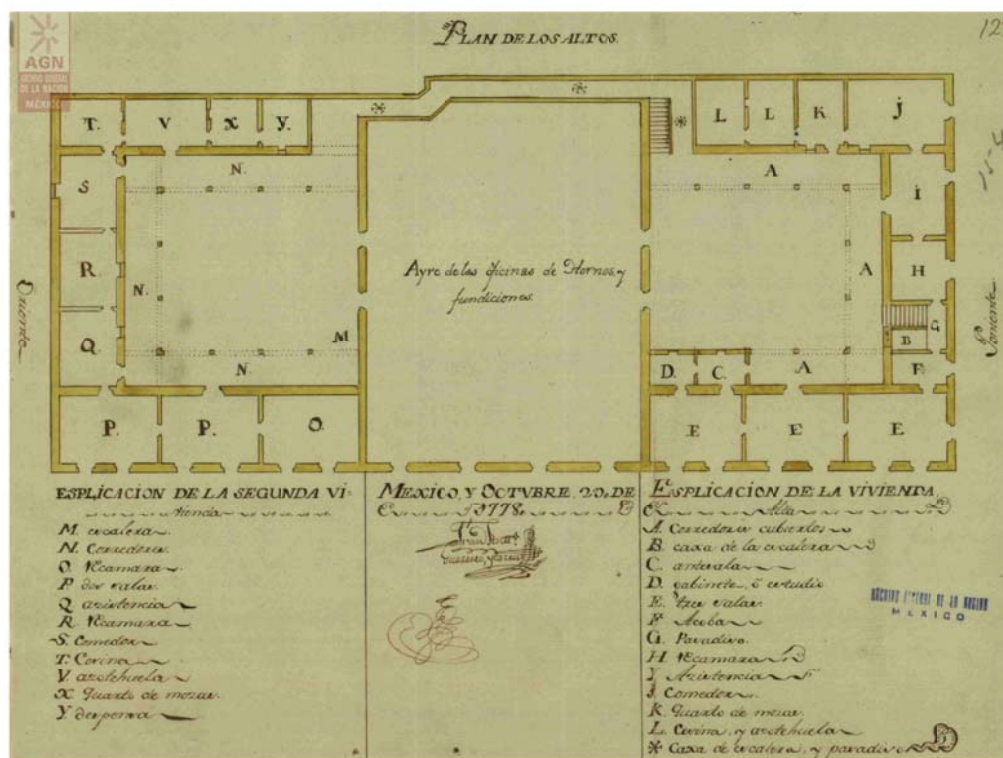 PLAN DE LOS ALTOS.
12
AGN
ARCHIVO GENERAL
DE LA NACION
MÉXICO
T. V X Y.
L L K j
S N. A i
R N. A H
Ayre de las oficinas de Hornos, y
fundiciones.
Oriente
Poniente
G
B
Q N M D. C. A F
P. P. O. E E E
ESPLICACION DE LA SEGUNDA VI-
vienda
M. escalera.
N. Corredores.
O. Recamara.
P. dos salas.
Q asistencia
R. Recamara.
S. Comedor
T. Cosina
V. asotehuela
X. Quarto de mozas.
Y despensa
MEXICO, Y OCTVBRE, 20, DE
1778
ESPLICACION DE LA VIVIENDA
Alta
A. Corredores cubiertos
B. caxa de la escalera
C. antesala
D. gabinete, ó estudio
E. tres salas.
F. Alcoba
G. Pasadiso.
H. Recamara
Y. Asistencia
j. Comedor
K. Quarto de mozas.
L. Cosina, y asotehuela
* Caxa de escalera, y pasadiso
ARCHIVO GENERAL DE LA NACION
MEXICO